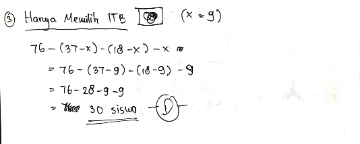 ③ Hanya Memilih ITB (x = 9)
76 - (37-x) - (18-x) - x =
= 76 - (37-9) - (18-9) - 9
= 76 - 28 - 9 - 9
= 30 siswa D